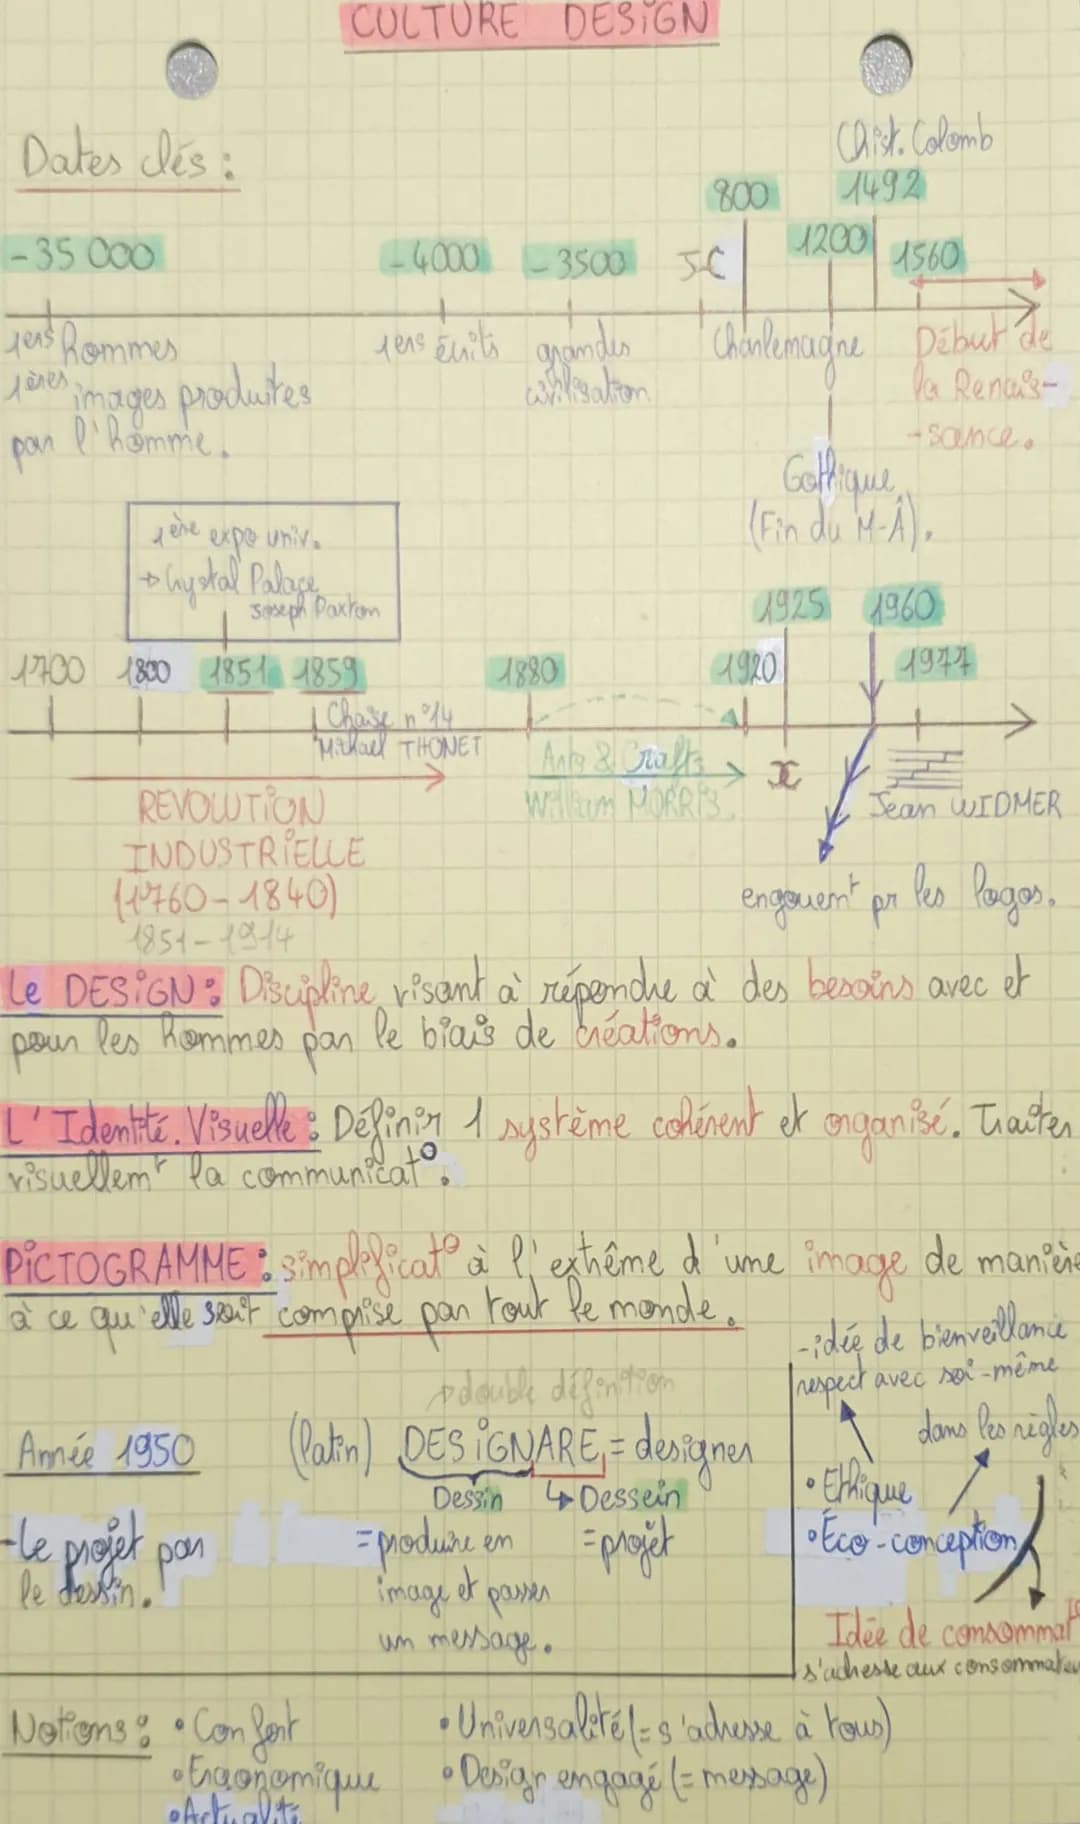 CULTURE DESIGN
Dates clés :
Chist. Colomb
800
1492
-35 000
-4000
-3500
J-C
1200
1560
1ers hommes
1ères images produites
par l'homme.
1ers écrits
grandes
civilisation
Charlemagne
Début de
la Renais-
-sance.
Gothique
(Fin du M-Â).
1ère expo univ.
→ Crystal Palace
Joseph Paxton
1925
1960
1700
1800
1851
1859
1880
1920
1977
Chaise n°14
Mickael THONET
Arts & Crafts
William MORRIS
Jean WIDMER
REVOLUTION
INDUSTRIELLE
(1760-1840)
1851-1914
engouemt pr les logos.
Le DESIGN : Discipline visant à répondre à des besoins avec et
pour les hommes par le biais de créations.
L'Identité Visuelle : Définir 1 système cohérent et organisé. Traiter
visuellemt la communicat°.
PICTOGRAMME : simplificat° à l'extrême d'une image de manière
à ce qu'elle soit comprise par tout le monde.
-idée de bienveillance
respect avec soi-même
→ double définition
dans les règles
Année 1950
(latin) DESIGNARE = designer
Dessin
↳ Dessein
• Ethique
-Le projet par
le dessin.
= produire en
image et passer
un message.
= projet
• Éco-conception
Idée de consommat°
s'adresse aux consommateu
Notions :
• Confort
• Universalité (= s'adresse à tous)
• Ergonomique
• Design engagé (= message)
• Actualité